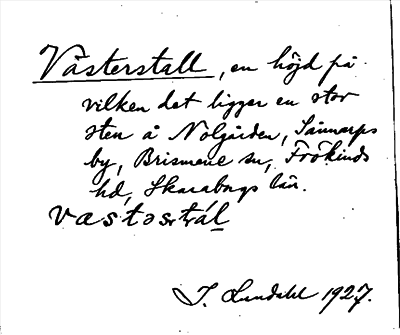 Västerstall, en höjd på
vilken det ligger en stor
sten å Nolgården, Sannarps
by, Brismene sn, Frökinds
hd, Skaraborgs län.
I. Lundahl 1927.